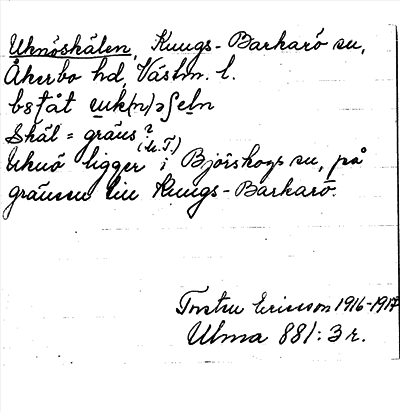 Uknöskälen, Kungs-Barkarö sn,
Åkerbo hd, Västm. l.
Skäl = gräns?
(M.T.)
Uknö ligger i Björskogs sn, på
gränsen till Kungs-Barkarö.
Torsten Ericsson 1916-1917
Ulma 881:3 r.